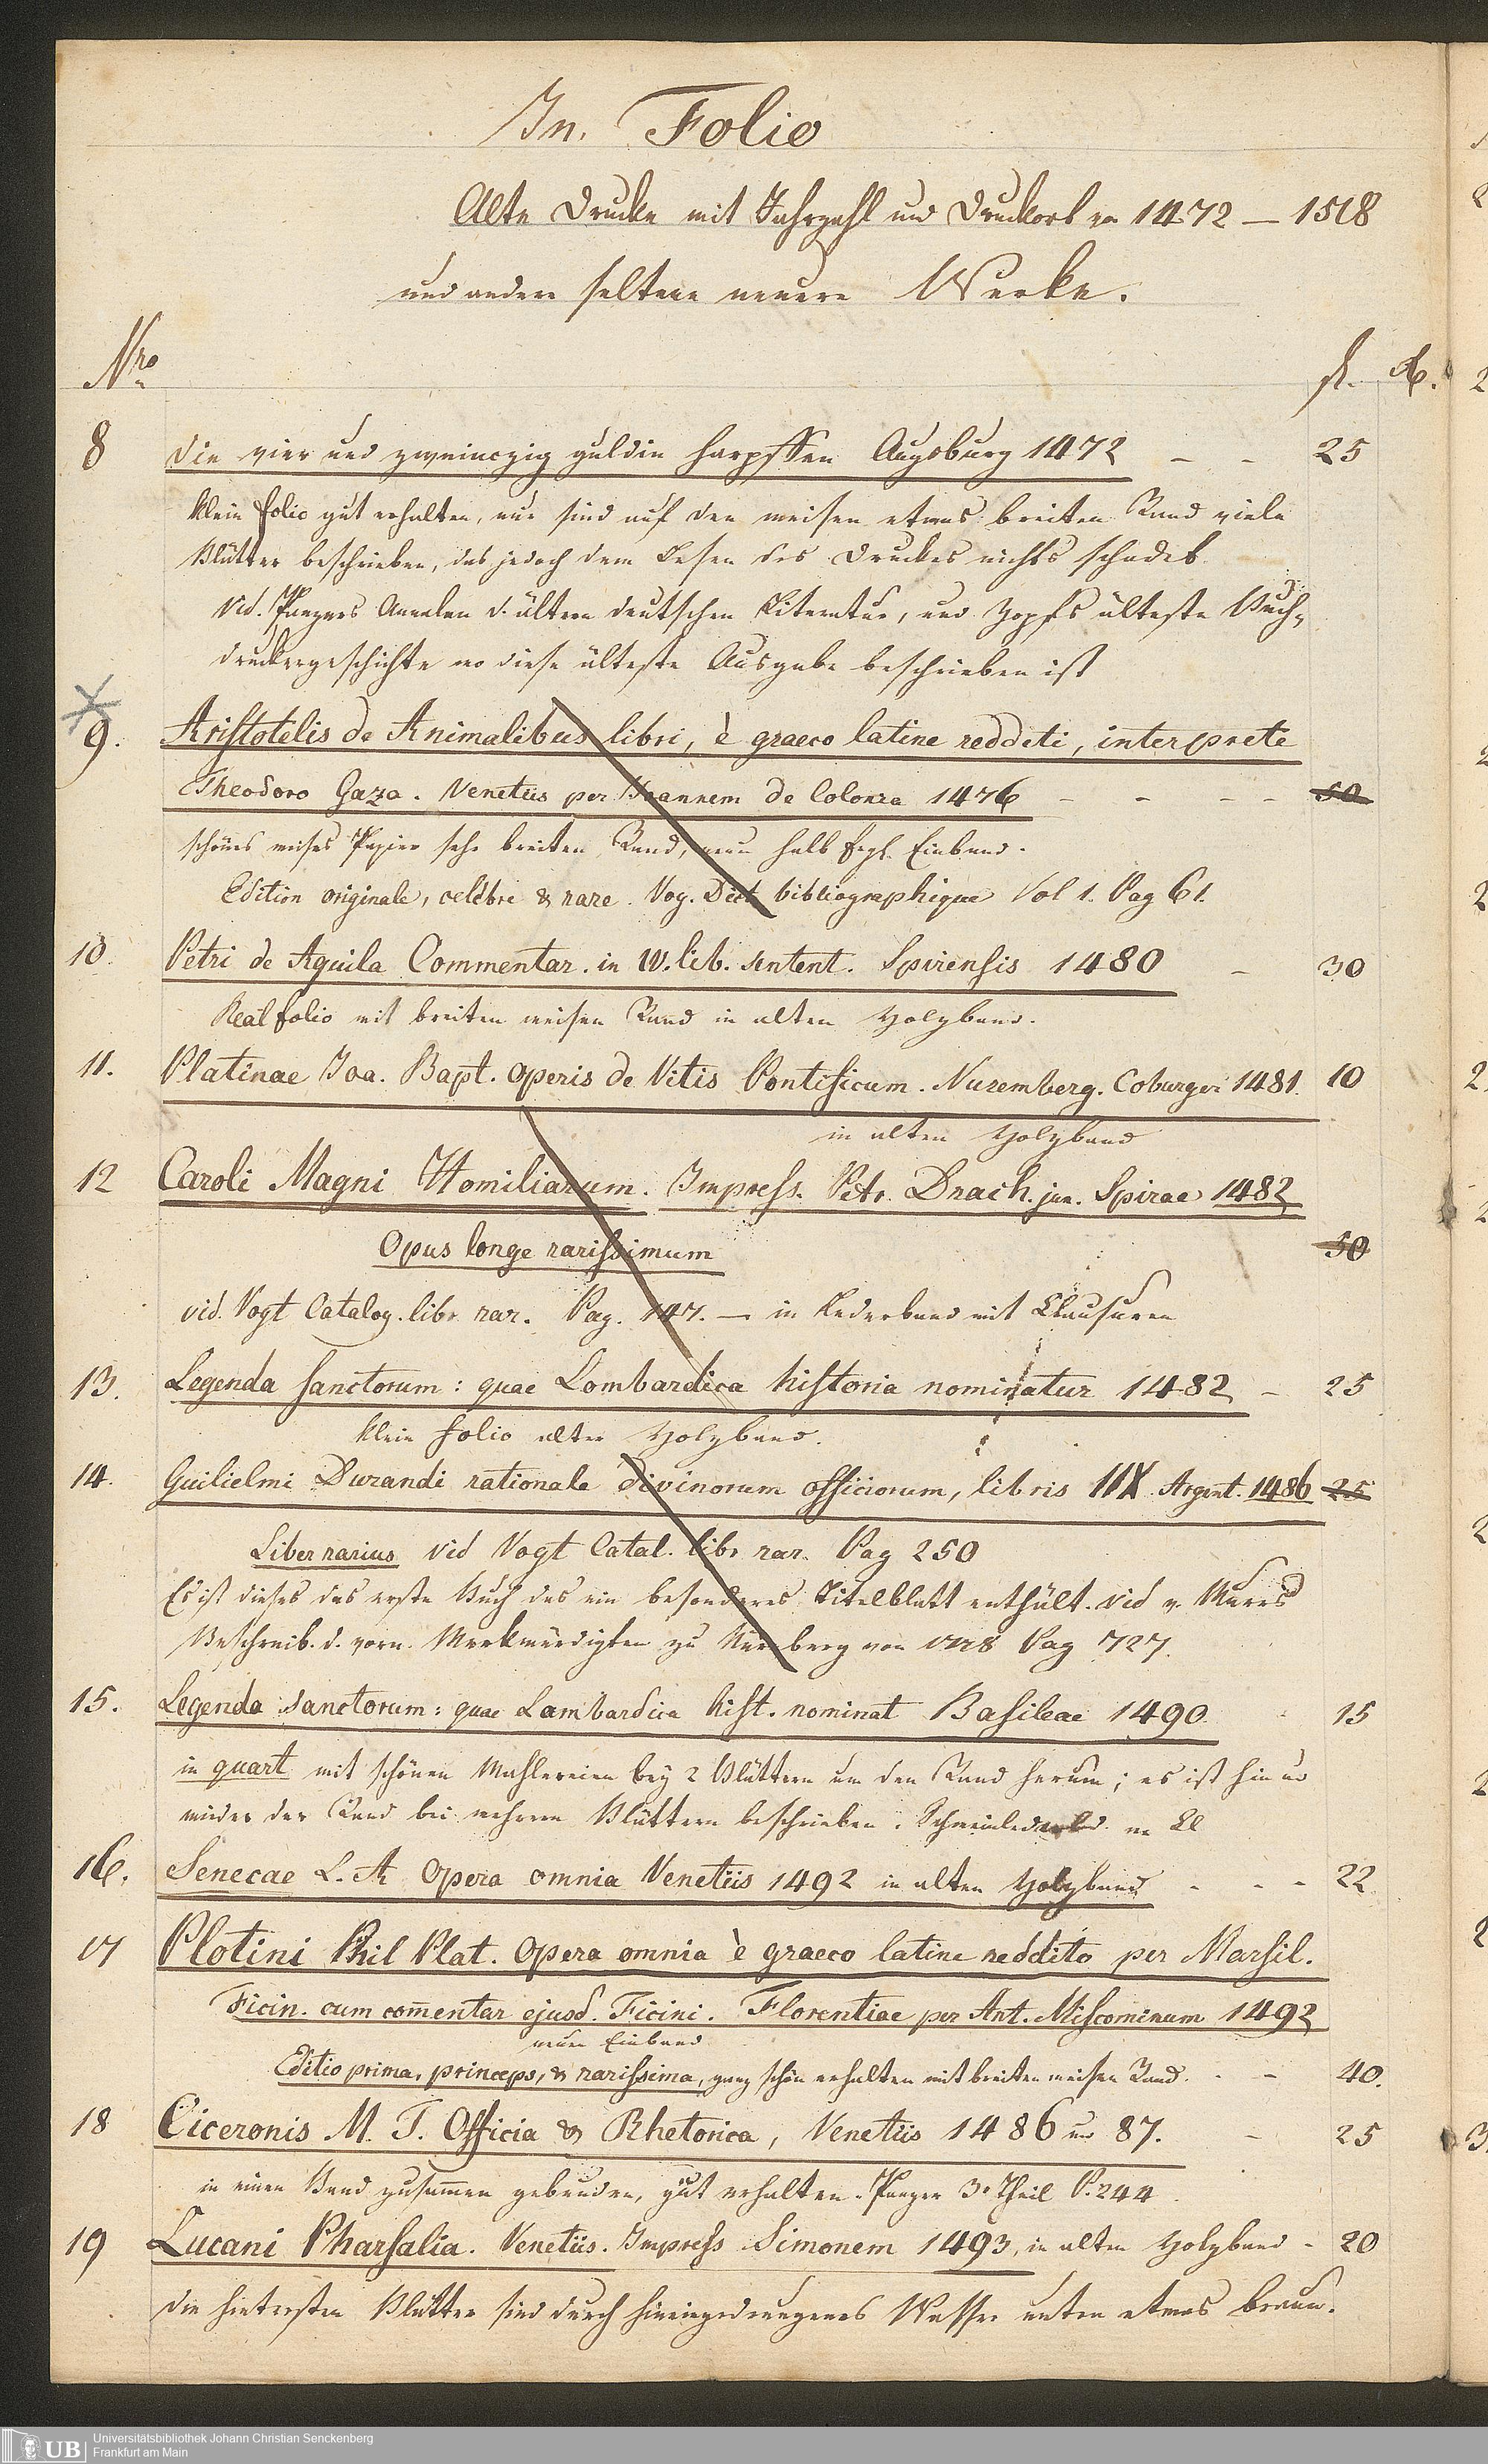 In Folio
Alte Drucke mit Jahrzahl und Druckort von 1472 — 1518
und andere seltene neuere Werke.
Nro fl. Xr.
8 Die vier und zweinczig guldin harpffen Augsburg 1472 — — 25
klein folio gut erhalten, nur sind auf den weisen etwas breiten Rand viele
Blätter beschrieben, das jedoch dem Lesen des Druckes nichts schadet.
vid. Panzers Annalen d. ältern deutschen Literatur, und Zapfs älteste Buch-
druckergeschichte wo diese älteste Ausgabe beschrieben ist
9. Aristotelis de Animalibus libri, è graeco latine redditi, interprete
Theodoro Gaza. Venetiis per Joannem de Colonia 1476 - - - - 50
schönes weises Papier sehr breiten Rand, neuer halb frzl. Einband.
Edition originale, celèbre & rare. Vog. Dict. bibliographique Vol 1. Pag 61.
10. Petri de Aquila Commentar. in IV. lib. sentent. Spirensis 1480 - 30
Real folio mit breiten weisen Rand in alten Holzband.
11. Platinae Joa. Bapt. operis de Vitis Pontificum. Nuremberg. Coburger 1481. 10
in alten Holzband
12 Caroli Magni Homiliarum. Impress. Petr. Drach. jun. Spirae 1482
Opus longe rarissimum 50
vid. Vogt Catalog. libr. rar. Pag. 147. — in Lederband mit Clausuren
13. Legenda sanctorum: quae Lombardica historia nominatur 1482 - 25
klein folio alter Holzband.
14. Guilielmi Durandi rationale divinorum officiorum, libris IIX Argent. 1486 25
Liber rarius vid Vogt Catal. libr rar. Pag 250
Es ist dieses das erste Buch das ein besonderes Titelblatt enthält. vid v. Murrs
Beschreib. d. vorn. Merkwürdigkten zu Nürnberg von 1778 Pag 727.
15. Legenda sanctorum: quae Lambardica hist. nominat Basileae 1490. 15
in quart mit schönen Mahlereien bey 2 Blättern um den Rand herum; es ist hin u
wieder der Rand bei mehrern Blättern beschrieben.
16. Senecae L. A. Opera omnia Venetiis 1492 in alten Holzband - - - 22
17 Plotini Phil Plat. Opera omnia è graeco latine reddito per Marsil.
Ficin. cum com̄entar ejusd. Ficini. Florentiae per Ant. Miscominum 1492
neuer Einband
Editio prima, princeps, & rarissima, ganz schön erhalten mit breiten weisen Rand. - - 40.
18 Ciceronis M. T. Officia & Rhetorica, Venetiis 1486 u 87. - 25
in einen Band zusam̄en gebunden, gut erhalten. Panzer 3r Theil P. 244.
19 Lucani Pharsalia. Venetiis. Impress Simonem 1493, in alten Holzband - 20
Die hintersten Blätter sind durch hineingedrungenes Wasser unten etwas braun.
UB Universitätsbibliothek Johann Christian Senckenberg
Frankfurt am Main